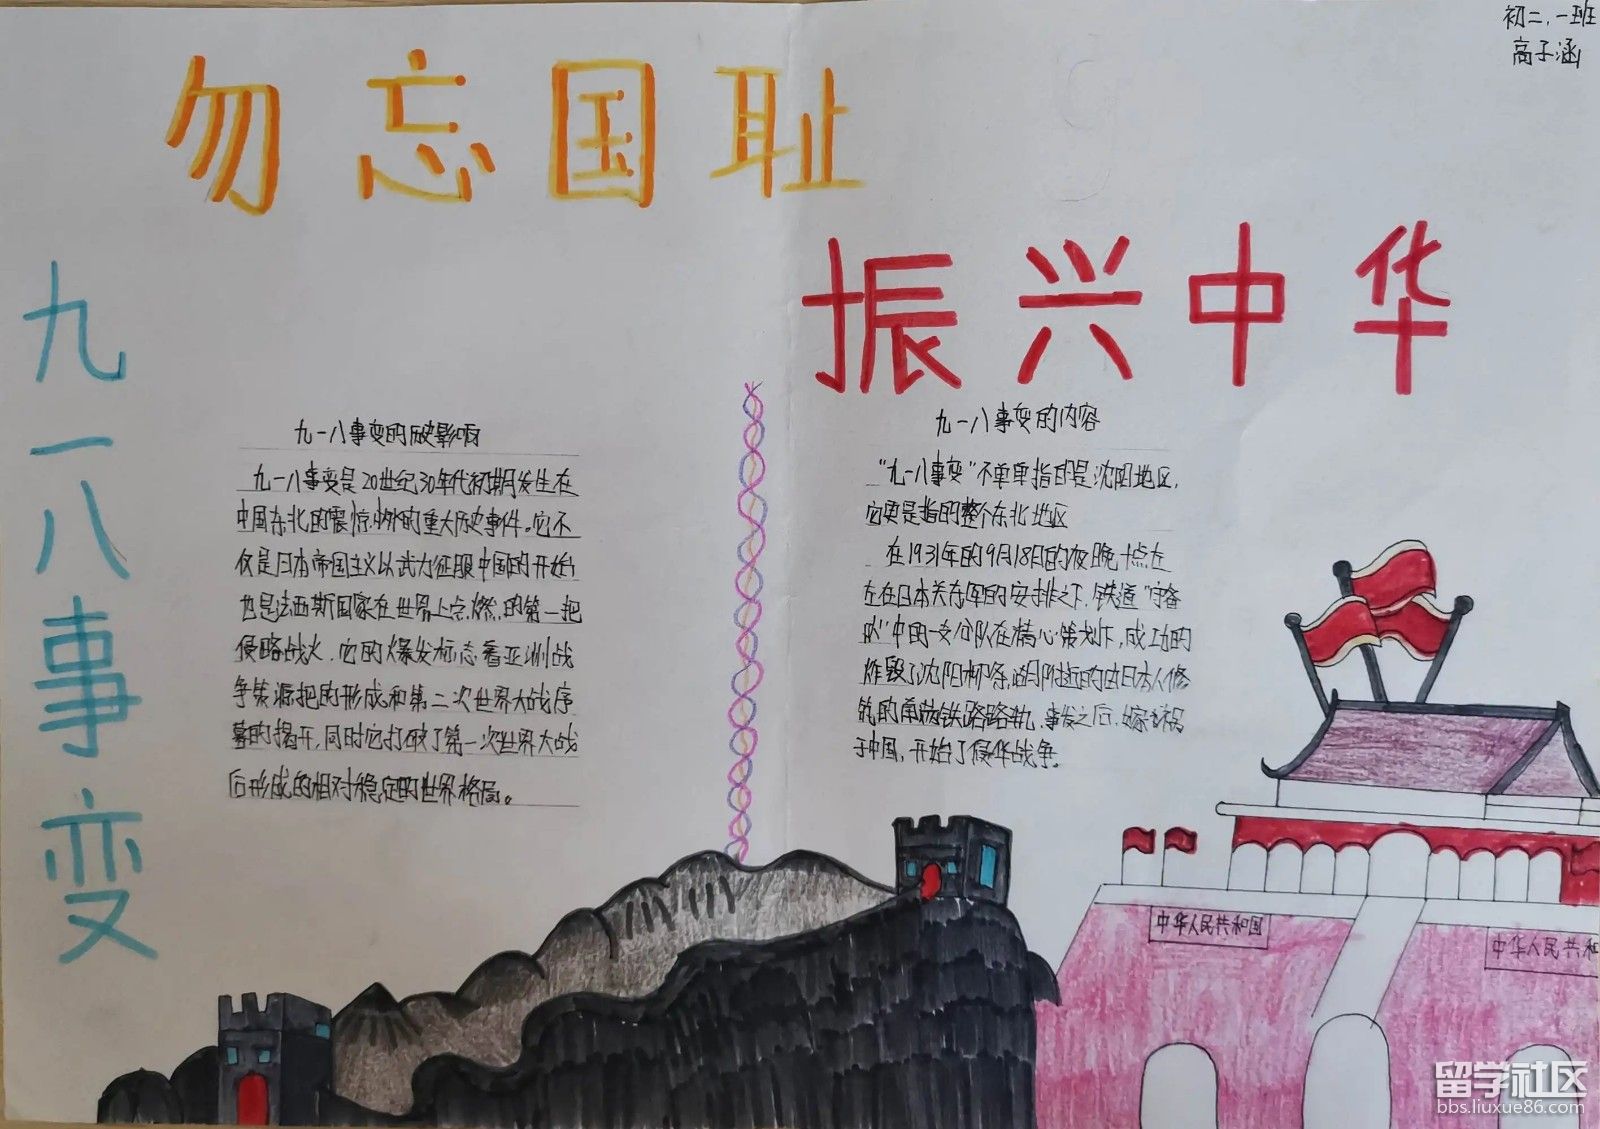 初二,一班
高子涵
勿忘国耻
振兴中华
九一八事变
九一八事变的历史影响
九一八事变是20世纪30年代初期发生在
中国东北的震惊中外的重大历史事件。它不
仅是日本帝国主义以武力征服中国的开始,
也是法西斯国家在世界上点燃的第一把
侵略战火,它的爆发标志着亚洲战
争策源把的形成和第二次世界大战序
幕的揭开,同时它打破了第一次世界大战
后形成的相对稳定的世界格局。
九一八事变的内容
“九一八事变”不单单指的是沈阳地区,
它更是指的整个东北地区
在1931年的9月18日的夜晚十点左
左在日本关东军的安排之下,铁道“守备
队”中的一支分队在精心策划下,成功的
炸毁了沈阳柳条湖附近的由日本人修
筑的南满铁路路轨,事发之后,嫁祸
于中国,开始了侵华战争。
中华人民共和国
中华人民共和
留学社区
bbs.liuxue86.com